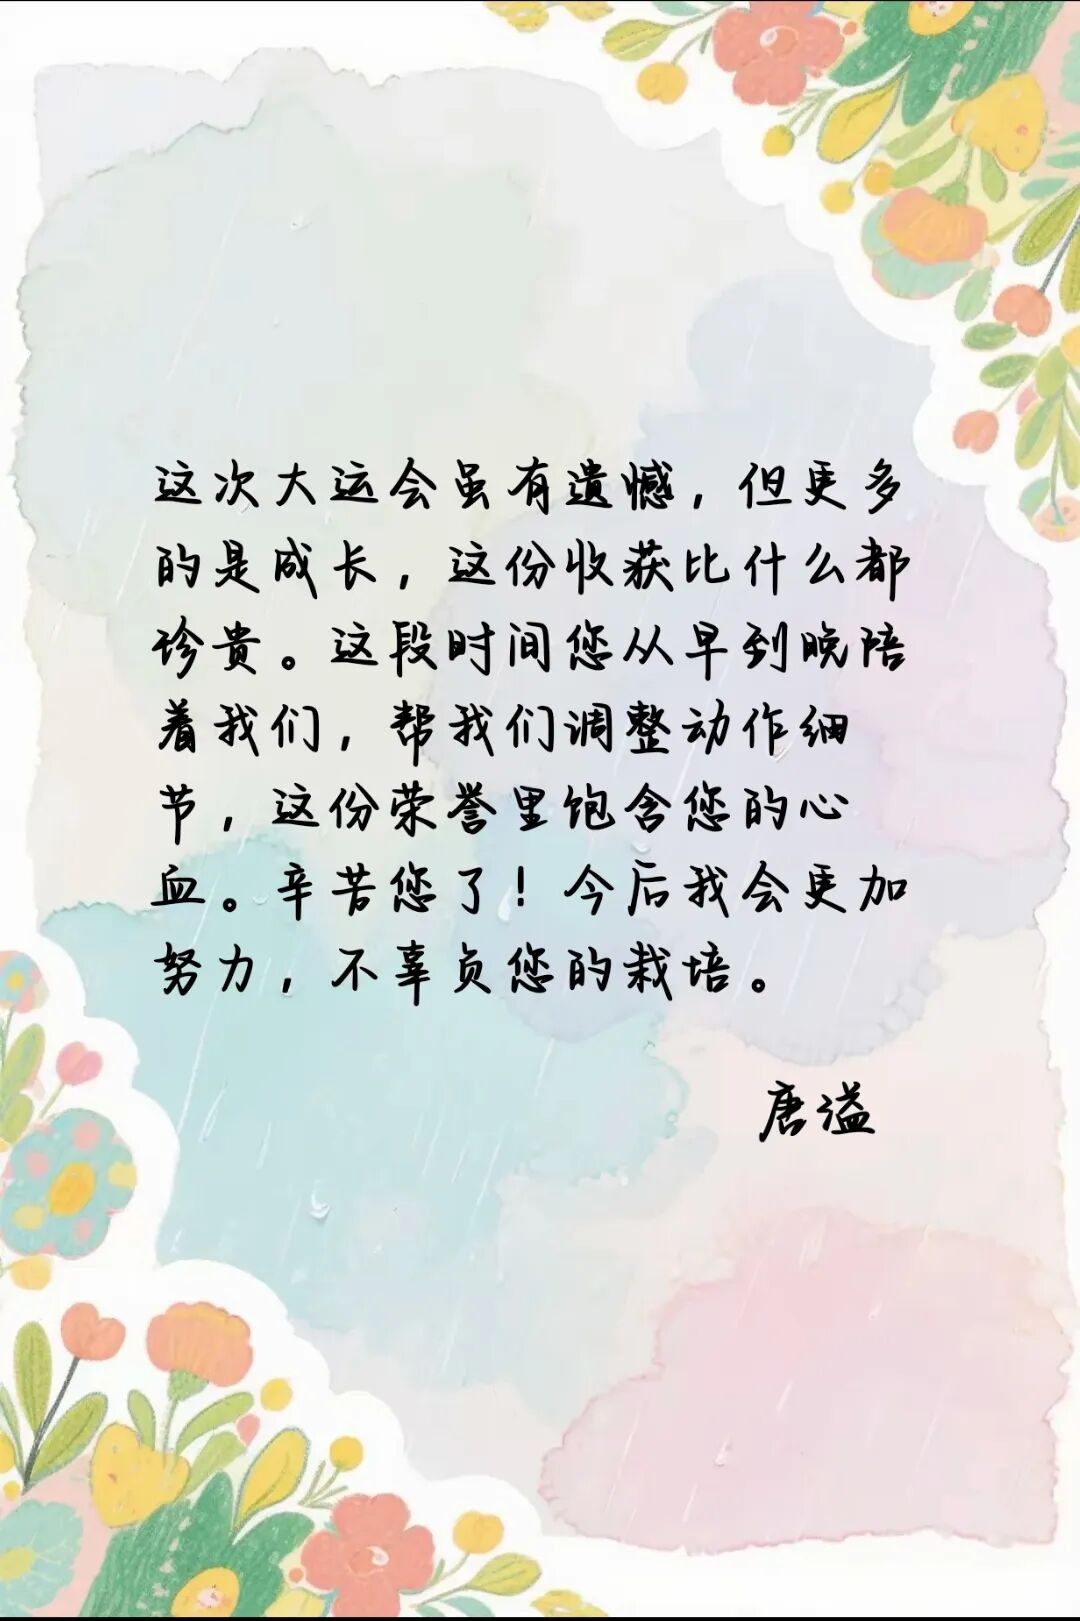 这次大运会虽有遗憾，但更多
的是成长，这份收获比什么都
珍贵。这段时间您从早到晚陪
着我们，帮我们调整动作细
节，这份荣誉里饱含您的心
血。辛苦您了！今后我会更加
努力，不辜负您的栽培。
唐溢